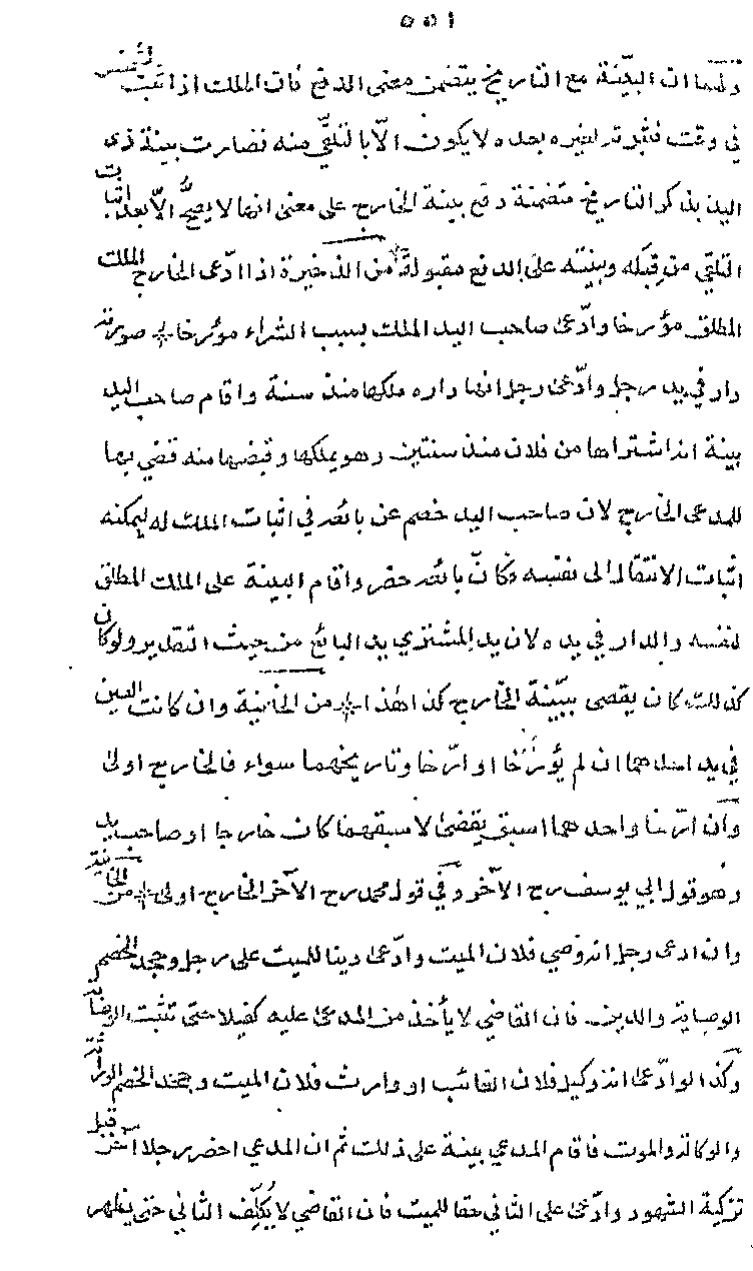 ٥٥١
ولهما ان البينة مع التاريخ يتضمن معنى الدفع فان الملك اذا ثبت لشخص
في وقت فثبوته لغيره بعده لا يكون الّا بالتلقّي منه فصارت بينة ذى
اليد بذكر التاريخ متضمنة دفع بينة الخارج على معنى انها لا يصحّ الّا بعد اثبات
التلقّي من قِبَله وبينته على الدفع مقبولة من الذخيرة اذا ادّعى الخارج الملك
المطلق مؤرخا وادّعى صاحب اليد الملك بسبب الشراء مؤرخا صورته
دار في يد رجل وادّعى رجل انها داره ملكها منذ سنة واقام صاحب اليد
بينة انه اشتراها من فلان منذ سنتين وهو يملكها وقبضها منه قضي بها
للمدعى الخارج لان صاحب اليد خصم عن بائعه في اثبات الملك له ليمكنه
اثبات الانتقال الى نفسه فكانّ بائعه حضر واقام البينة على الملك المطلق
لنفسه والدار في يده لان يد المشتري يد البائع من حيث التقدير ولو كان
كذلك كان يقضى ببيّنة الخارج كذا هذا من الخانية وان كانت العين
في يد احدهما ان لم يؤرّخا او ارّخا وتاريخهما سواء فالخارج اولى
وان ارّخا واحدهما اسبق يقضى لاسبقهما كان خارجا او صاحب يد
وهو قول ابي يوسف رح الآخر وفي قول محمد رح الآخر الخارج اولى من الخانية
وان ادعى رجل انه وصي فلان الميت وادّعى دينا للميت على رجل وجحد الخصم
الوصاية والدين فان القاضي لا يأخذ من المدعى عليه كفيلا حتى تثبت الوصاية
وكذا لو ادّعى انه وكيل فلان الغائب او وارث فلان الميت وجحد الخصم الوراثة
والوكالة والموت فاقام المدعي بينة على ذلك ثم ان المدعي احضر رجلا آخر قبل
تزكية الشهود وادّعى على الثاني حقا للميت فان القاضي لا يكلّف الثاني حتى يظهر